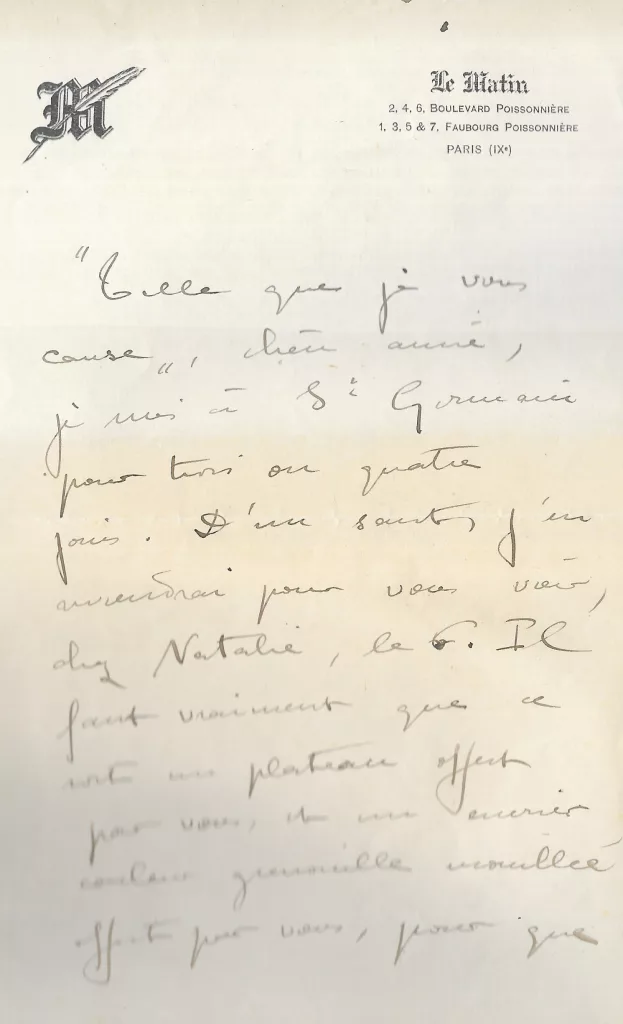 M
Le Matin
2, 4, 6, Boulevard Poissonnière
1, 3, 5 & 7, Faubourg Poissonnière
PARIS (IXe)
"Telle que je vous
cause", chère amie,
je suis à St Germain
pour trois ou quatre
jours. D'un saut, j'en
reviendrai pour vous voir,
chez Natalie, le 6. Il
faut vraiment que ce
soit un plateau offert
par vous, et un encrier
couleur grenouille mouillée
offert par vous, pour que